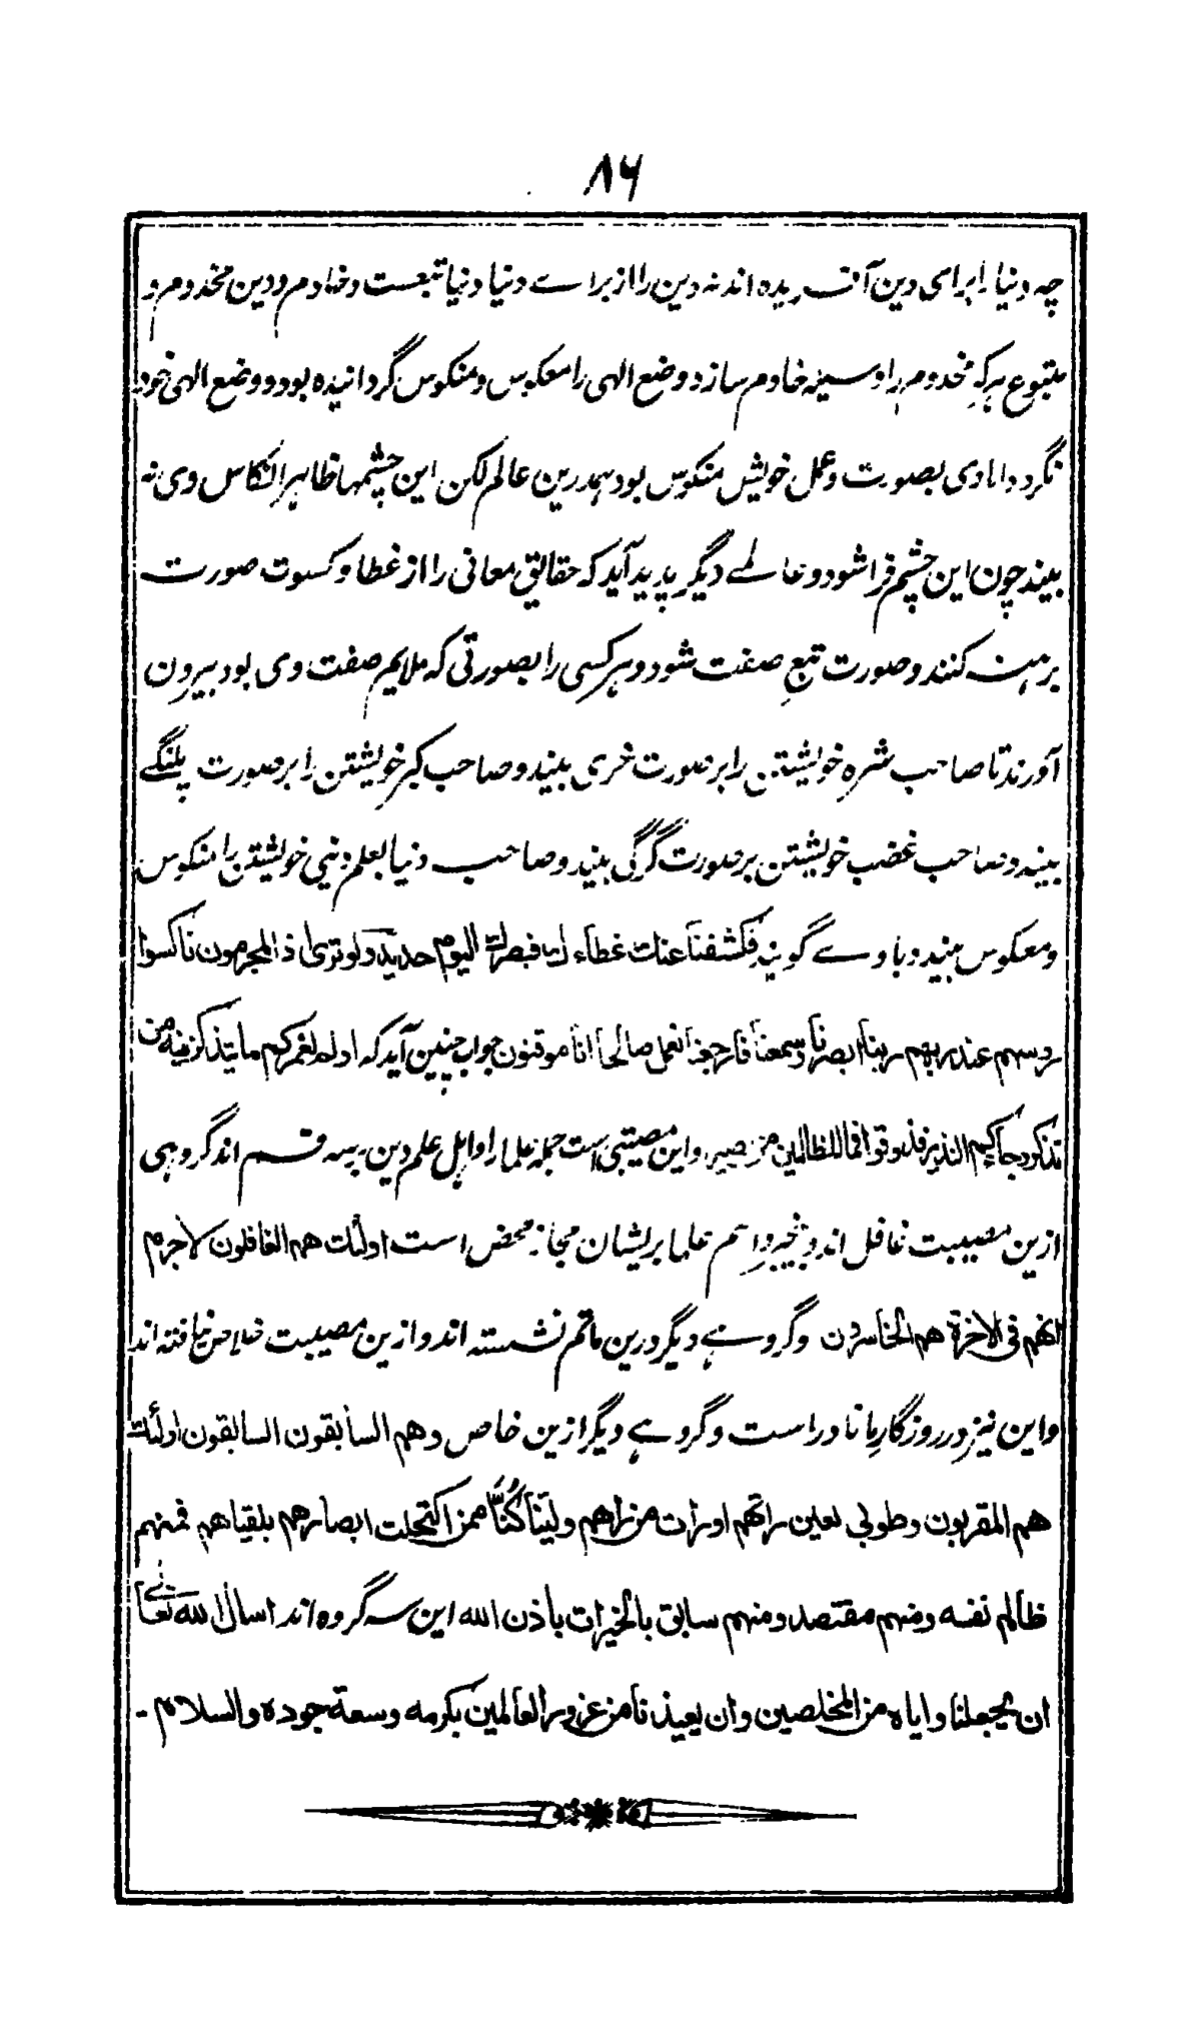 ۸۶
چه دنیا را برای دین آفریده اند نه دین را از براے دنیا دنیا تبعست و خادم و دین مخدوم و
متبوع هر که مخدوم را وسیله خادم سازد وضع الهی را معکوس و منکوس گردانیده بود و وضع الهی خود
نگردد اما وی بصورت و عمل خویش منکوس بود همدرین عالم لکن این چشمها ظاهر انتکاس وی نه
بیند چون این چشم فرا شود و عالمے دیگر پدید آید که حقایق معانی را از غطا و کسوت صورت
برهنه کنند و صورت تبع صفت شود و هر کسی را بصورتی که ملایم صفت وی بود بیرون
آورند تا صاحب شره خویشتن را بر صورت خری بیند و صاحب کبر خویشتن را بر صورت پلنگے
بیند و صاحب غضب خویشتن بر صورت گرگی بیند و صاحب دنیا بعلم دینی خویشتن را منکوس
و معکوس بیند و با وے گویند فکشفنا عنك غطاءك فبصرك الیوم حدید ولو تری اذ المجرمون ناکسوا
رءسهم عند ربهم ربنا ابصرنا وسمعنا فارجعنا نعمل صالحا انا موقنون جواب چنین آید که اولم نعمرکم مایتذکر فیه من
تذکر وجاءکم النذیر فذوقوا فما للظالمین من نصیر و این مصیبتی است جمله علما را و اهل علم دین بر سه قسم اند گروهی
ازین مصیبت غافل اند و بیخبر و اسم علما بر ایشان مجاز محض است اولئك هم الغافلون لا جرم
انهم فی الاخرة هم الخاسرون و گروہے دیگر درین ماتم نشسته اند و ازین مصیبت خلاص نیافته اند
و این نیز در روزگار ما نادر است و گروہے دیگر ازین خاص وهم السابقون السابقون اولئك
هم المقربون وطوبی لعین راتهم او رات من راهم ولیتنا کُنَّا ممن اکتحلت ابصارهم بلقیاهم فمنهم
ظالم نفسه ومنهم مقتصد ومنهم سابق بالخیرات باذن الله این سه گروه اند اسال الله تعالی
ان یجعلنا وایاه من المخلصین وان یعیذنا من غرور العالمین بکرمه وسعة جوده والسلام -